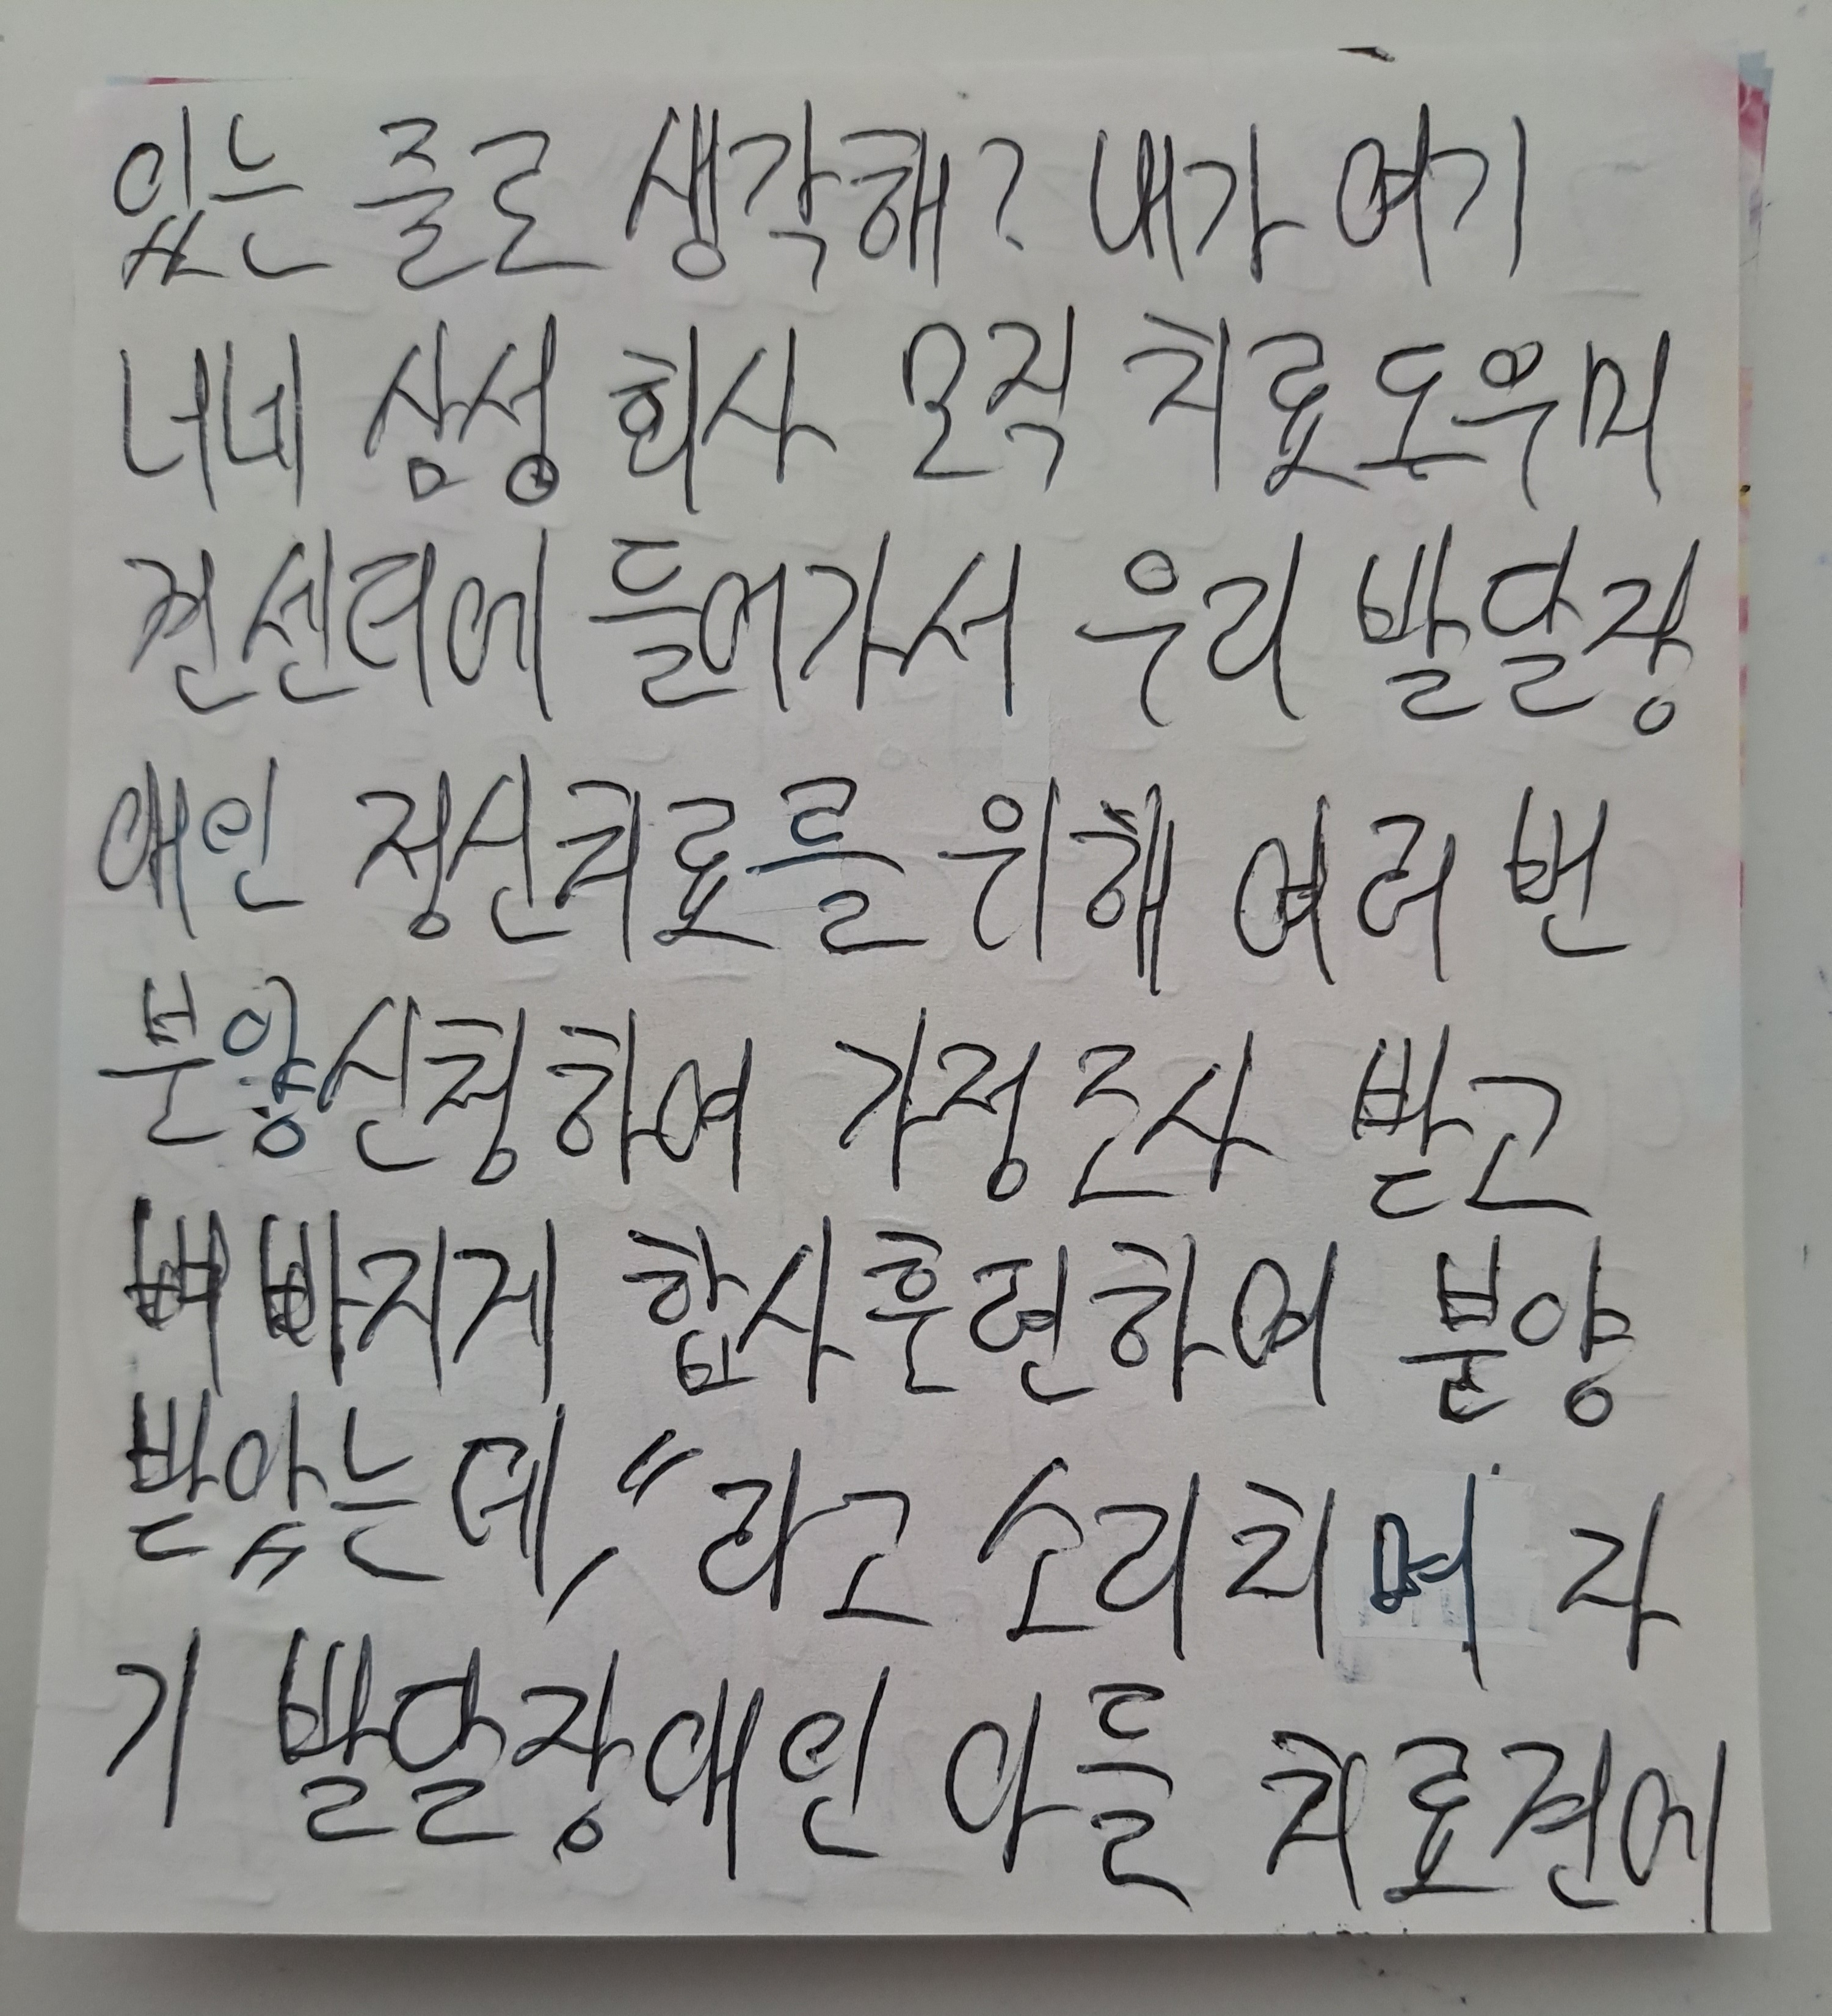 있는 줄로 생각해? 내가 여기
너네 삼성 회사 오직 치료도우미
견센터에 들어가서 우리 발달장
애인 정신치료를 위해 여러 번
분양신청하여 가정조사 받고
뼈 빠지게 합사훈련하여 분양
받았는데," 라고 소리치며 자
기 발달장애인 아들 치료견에